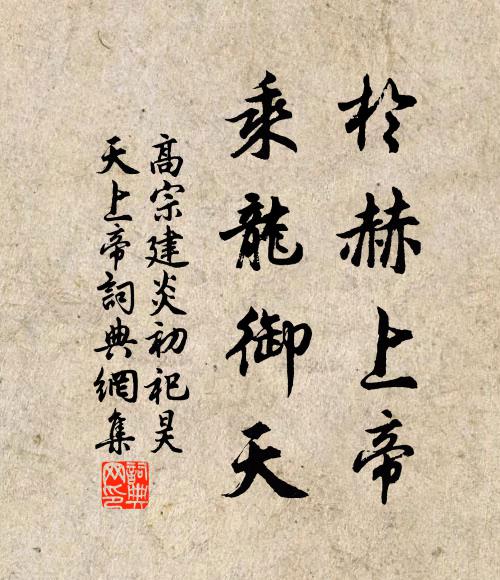 於赫上帝
乘龍御天
高宗建炎初祀昊
天上帝詞典網集
詞典網印